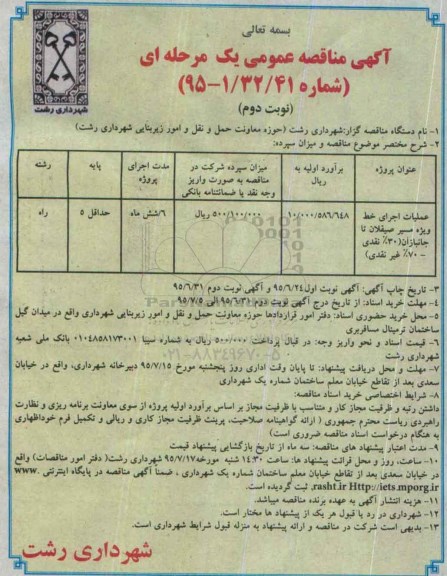 بسمه تعالی
آگهی مناقصه عمومی یک مرحله ای
(شماره ۹۵-۱/۳۲/۴۱)
(نوبت دوم)
شهرداری رشت
۱- نام دستگاه مناقصه گزار:شهرداری رشت (حوزه معاونت حمل و نقل و امور زیربنایی شهرداری رشت)
۲- شرح مختصر موضوع مناقصه و میزان سپرده:
عنوان پروژه
برآورد اولیه به ریال
میزان سپرده شرکت در مناقصه به صورت واریز وجه نقد یا ضمانتنامه بانکی
مدت اجرای پروژه
پایه
رشته
عملیات اجرای خط ویژه مسیر صیقلان تا جانبازان(۳۰٪ نقدی - ۷۰٪ غیر نقدی)
۱۰/۰۰۰/۵۸۶/۶۴۸
۵۰۰/۱۰۰/۰۰۰ ریال
۶/شش ماه
حداقل ۵
راه
۳- تاریخ چاپ آگهی: آگهی نوبت اول۹۵/۶/۲۴ و آگهی نوبت دوم ۹۵/۶/۳۱
۴- مهلت خرید اسناد: از تاریخ درج آگهی نوبت دوم ۹۵/۶/۳۱ الی ۹۵/۷/۵
۵- محل خرید حضوری اسناد: دفتر امور قراردادها حوزه معاونت حمل و نقل و امور زیربنایی شهرداری واقع در میدان گیل
ساختمان ترمینال مسافربری
۶- قیمت اسناد و نحو واریز وجه: در قبال پرداخت ۵۰۰/۰۰۰ ریال به شماره سیبا ۰۱۰۴۸۵۸۱۷۳۰۰۱ بانک ملی شعبه
شهرداری رشت
۷- مهلت و محل دریافت پیشنهاد: تا پایان وقت اداری روز پنجشنبه مورخ ۹۵/۷/۱۵ دبیرخانه شهرداری، واقع در خیابان
سعدی بعد از تقاطع خیابان معلم ساختمان شماره یک شهرداری
۸- شرایط اختصاصی خرید اسناد مناقصه:
داشتن رتبه و ظرفیت مجاز کار و متناسب با ظرفیت مجاز بر اساس برآورد اولیه پروژه از سوی معاونت برنامه ریزی و نظارت
راهبردی ریاست محترم جمهوری ( ارائه گواهینامه صلاحیت، پرینت ظرفیت مجاز کاری و ریالی و تکمیل فرم خوداظهاری
به هنگام درخواست اسناد مناقصه ضروری است)
۹- مدت اعتبار پیشنهاد های مناقصه: سه ماه از تاریخ بازگشایی پیشنهاد قیمت
۱۰- ساعت، روز و محل قرائت پیشنهاد ها: ساعت ۱۴:۳۰ شنبه مورخه۹۵/۷/۱۷ شهرداری رشت( دفتر امور مناقصات) واقع
در خیابان سعدی بعد از تقاطع خیابان معلم ساختمان شماره یک شهرداری ، ضمناً آگهی مناقصه در پایگاه اینترنتی www.
rasht.ir Http://iets.mporg.ir, ثبت گردیده است.
۱۱- هزینه انتشار آگهی به عهده برنده مناقصه میباشد.
۱۲- شهرداری در رد یا قبول هر یک از پیشنهاد ها مختار است.
۱۳- بدیهی است شرکت در مناقصه و ارائه پیشنهاد به منزله قبول شرایط شهرداری است.
شهرداری رشت
۰۲۱-۸۸۳۴۹۶۷۰-۵